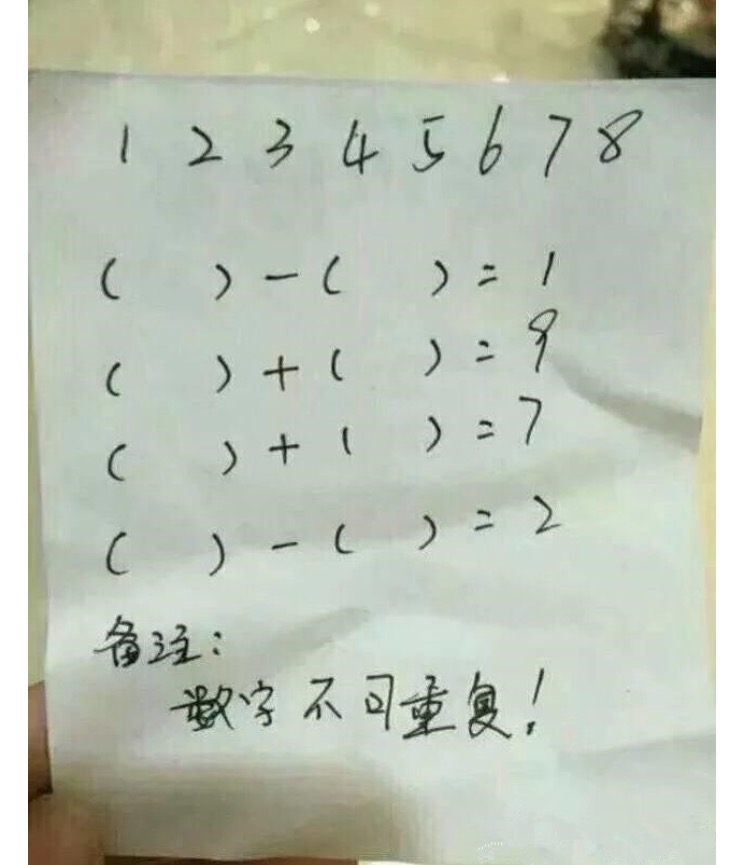 1 2 3 4 5 6 7 8
( ) - ( ) = 1
( ) + ( ) = 9
( ) + ( ) = 7
( ) - ( ) = 2
备注:
数字不可重复!